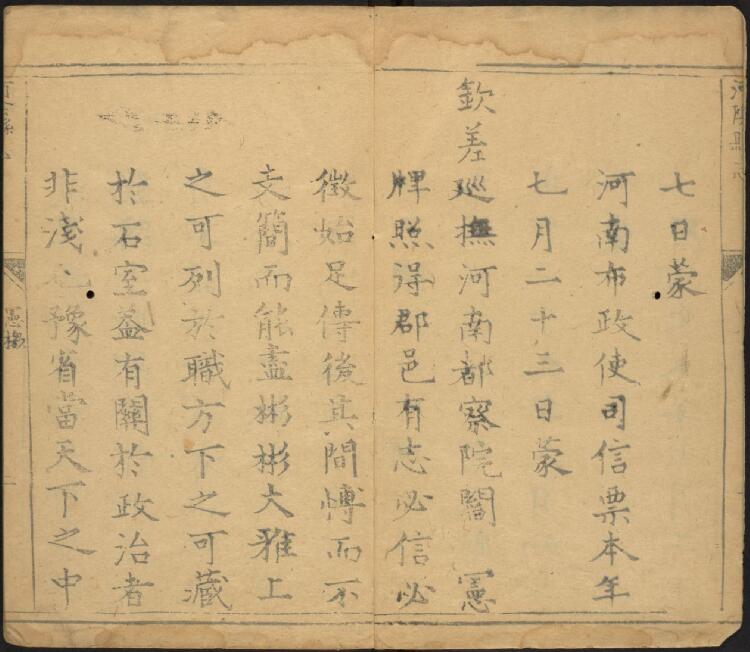 七日蒙
河南布政使司信票本年
七月二十三日蒙
欽差巡撫河南都察院閻 憲
牌照得郡邑有志必信必
徵始足傳後其間慱而不
支簡而能盡彬彬大雅上
之可列於職方下之可藏
於石室葢有關於政治者
非淺也豫省當天下之中
憲檄